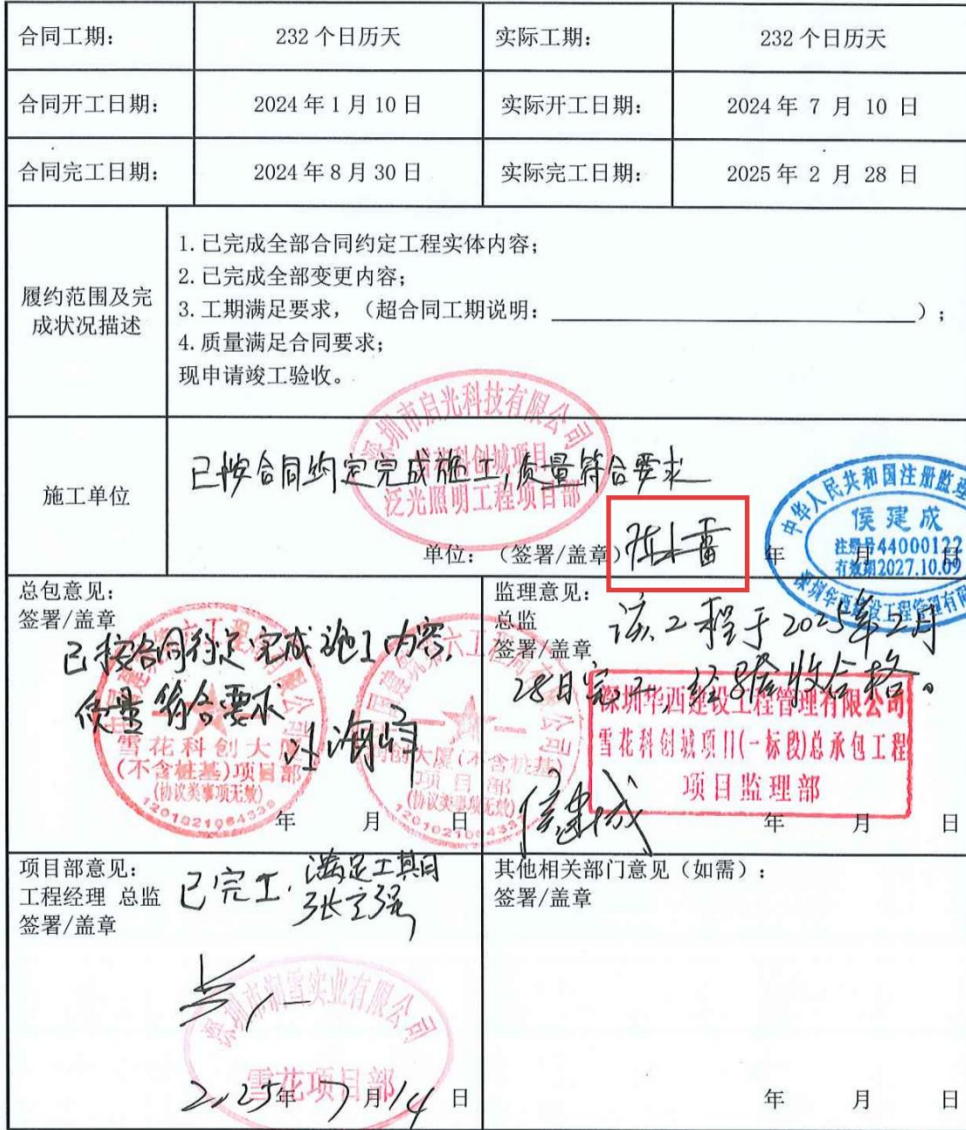 合同工期： 232 个日历天 实际工期： 232 个日历天
合同开工日期： 2024 年 1 月 10 日 实际开工日期： 2024 年 7 月 10 日
合同完工日期： 2024 年 8 月 30 日 实际完工日期： 2025 年 2 月 28 日
履约范围及完成状况描述
1. 已完成全部合同约定工程实体内容；
2. 已完成全部变更内容；
3. 工期满足要求，（超合同工期说明：）；
4. 质量满足合同要求；
现申请竣工验收。
施工单位
深圳市启光科技有限公司
雪花科创城项目
泛光照明工程项目部
已按合同约定完成施工,质量符合要求
单位：（签署/盖章） 年 月 日
中华人民共和国注册监理
侯建成
注册号44000122
有效期2027.10.09
深圳华西建设工程管理有限
总包意见：
签署/盖章
已按合同约定完成施工内容,
质量符合要求
雪花科创大
(不含桩基)项目部
(协议类事项无效)
120102106433
创大厦(不含桩基)
项目部
(协议类事项无效)
年 月 日
监理意见：
总监
签署/盖章
该工程于2025年2月
28日完工,经验收合格。
深圳华西建设工程管理有限公司
雪花科创城项目(一标段)总承包工程
项目监理部
侯建成
年 月 日
项目部意见：
工程经理 总监
签署/盖章
已完工,满足工期
深圳市润雪实业有限公司
雪花项目部
2025年 7 月 14 日
其他相关部门意见（如需）：
签署/盖章
年 月 日